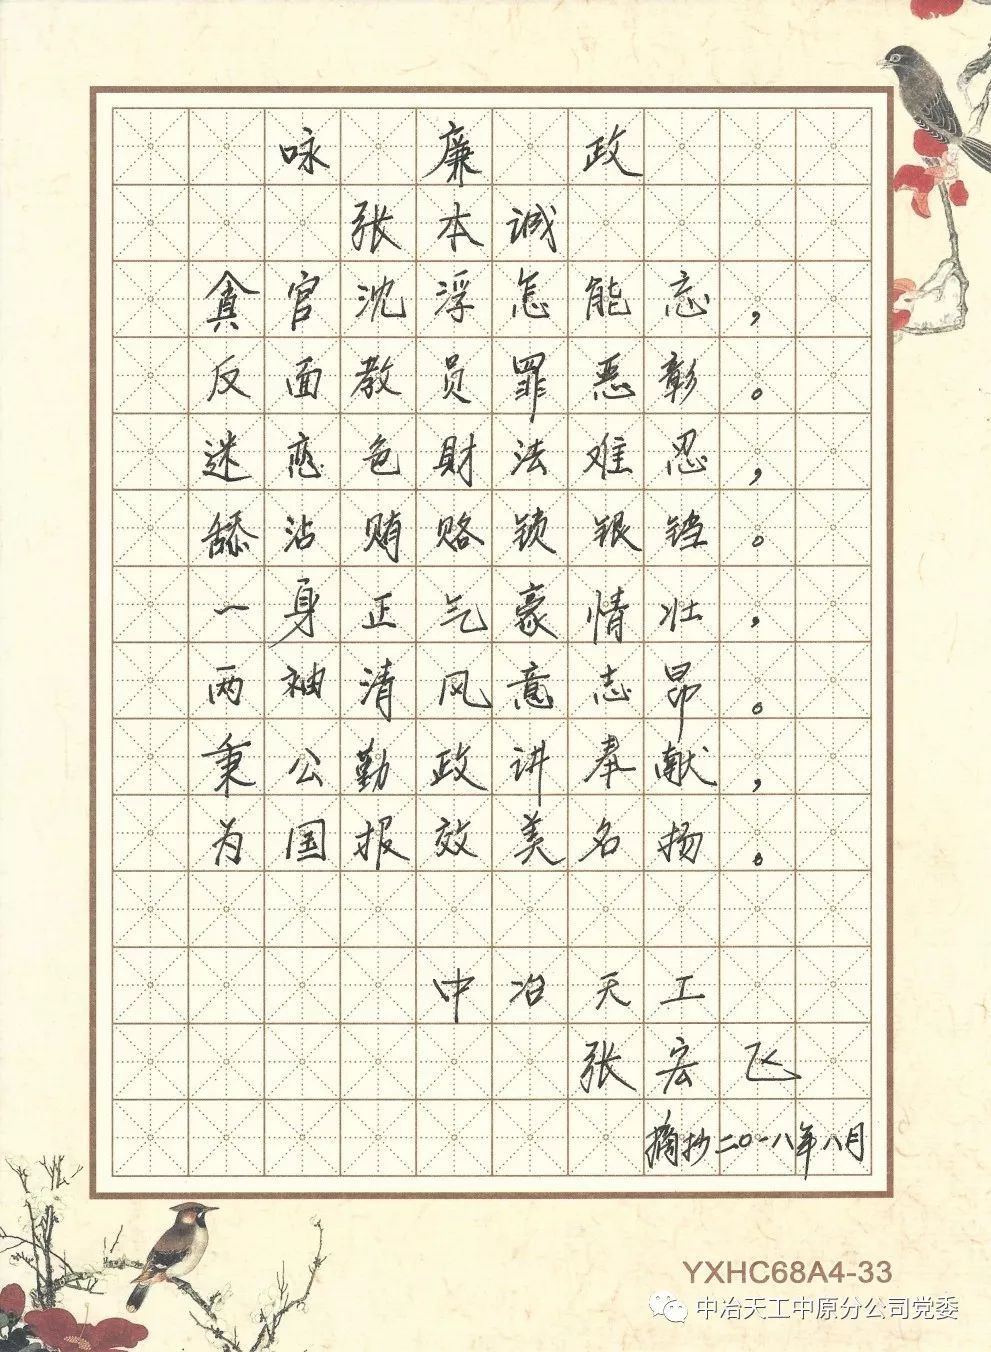 咏廉政
张本诚
贪官沈浮怎能忘，
反面教员罪恶彰。
迷恋色财法难忍，
舔沾贿赂锁银铛。
一身正气豪情壮，
两袖清风意志昂。
秉公勤政讲奉献，
为国报效美名扬。
中冶天工
张宏飞
摘抄二〇一八年八月
YXHC68A4-33
中冶天工中原分公司党委